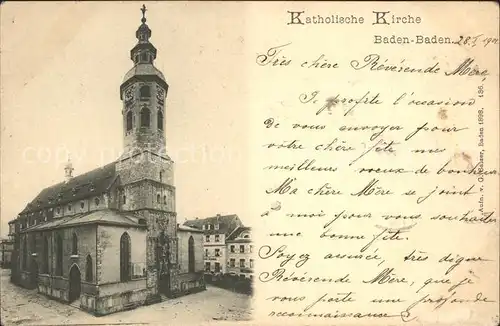 Katholische Kirche
Baden-Baden. 28.5.190
Très chère Révérende Mère
Je profite l'occasion
de vous envoyer pour
votre chère fête mes
meilleurs vœux de bonheur
Ma chère Mère se joint
à moi pour vous souhaiter
une bonne fête.
Soyez assurée, très digne
Révérende Mère, que je
vous porte une profonde
reconnaissance
Aufn. v. G. Salzer, Baden 1898. 136.